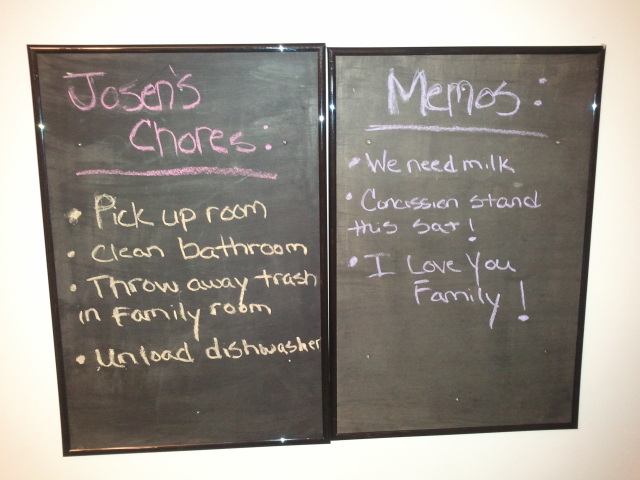 Josen's
Chores:
• Pick up room
• Clean bathroom
• Throw away trash
in family room
• Unload dishwasher
Memos:
• We need milk
• Concession stand
this Sat!
• I Love You
Family!